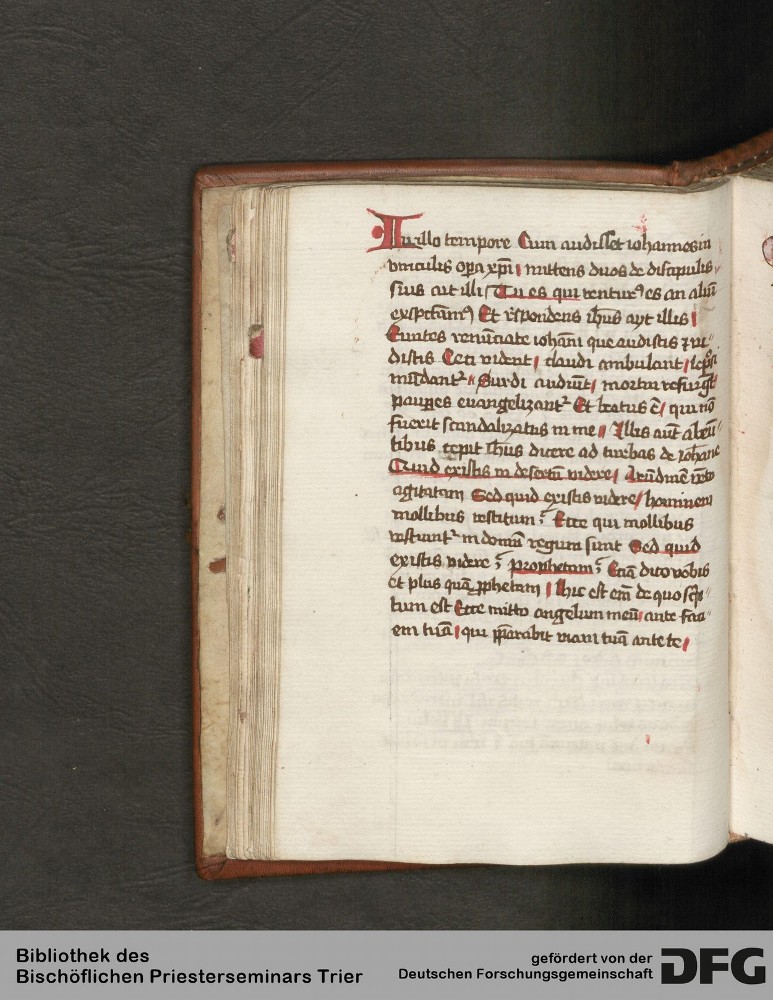 In illo tempore Cum audisset iohannes in
vinculis oꝑa xp̄i mittens duos de discipulis
suis ait illi Tu es qui venturꝰ es an aliū
exspectamꝰ Et respondens ih̄us ayt illis
Euntes renūciate iohāni que audistis ⁊ vi
distis Ceci vident claudi ambulant lep̄si
mūdantᷣ Surdi audiūt mortui resurgūt
pauꝑes euangelizantᷣ Et beatus ē qui nō
fuerit scandalizatus in me Illis aūt abeū
tibus cepit ih̄us dicere ad turbas de Johāne
Quid existis in desertū videre Arūdinē vēto
agitatam Sed quid existis videre hominem
mollibus vestitum Ecce qui mollibus
vestiuntᷣ in domū regum sunt Sed quid
existis videre prophetam Eciā dico vobis
et plus quā ꝓphetam Hic est em̄ de quo sc̄p
tum est Ecce mitto angelum meū ante faci
em tuā qui p̄parabit viam tuā ante te
Bibliothek des
Bischöflichen Priesterseminars Trier
gefördert von der
Deutschen Forschungsgemeinschaft
DFG